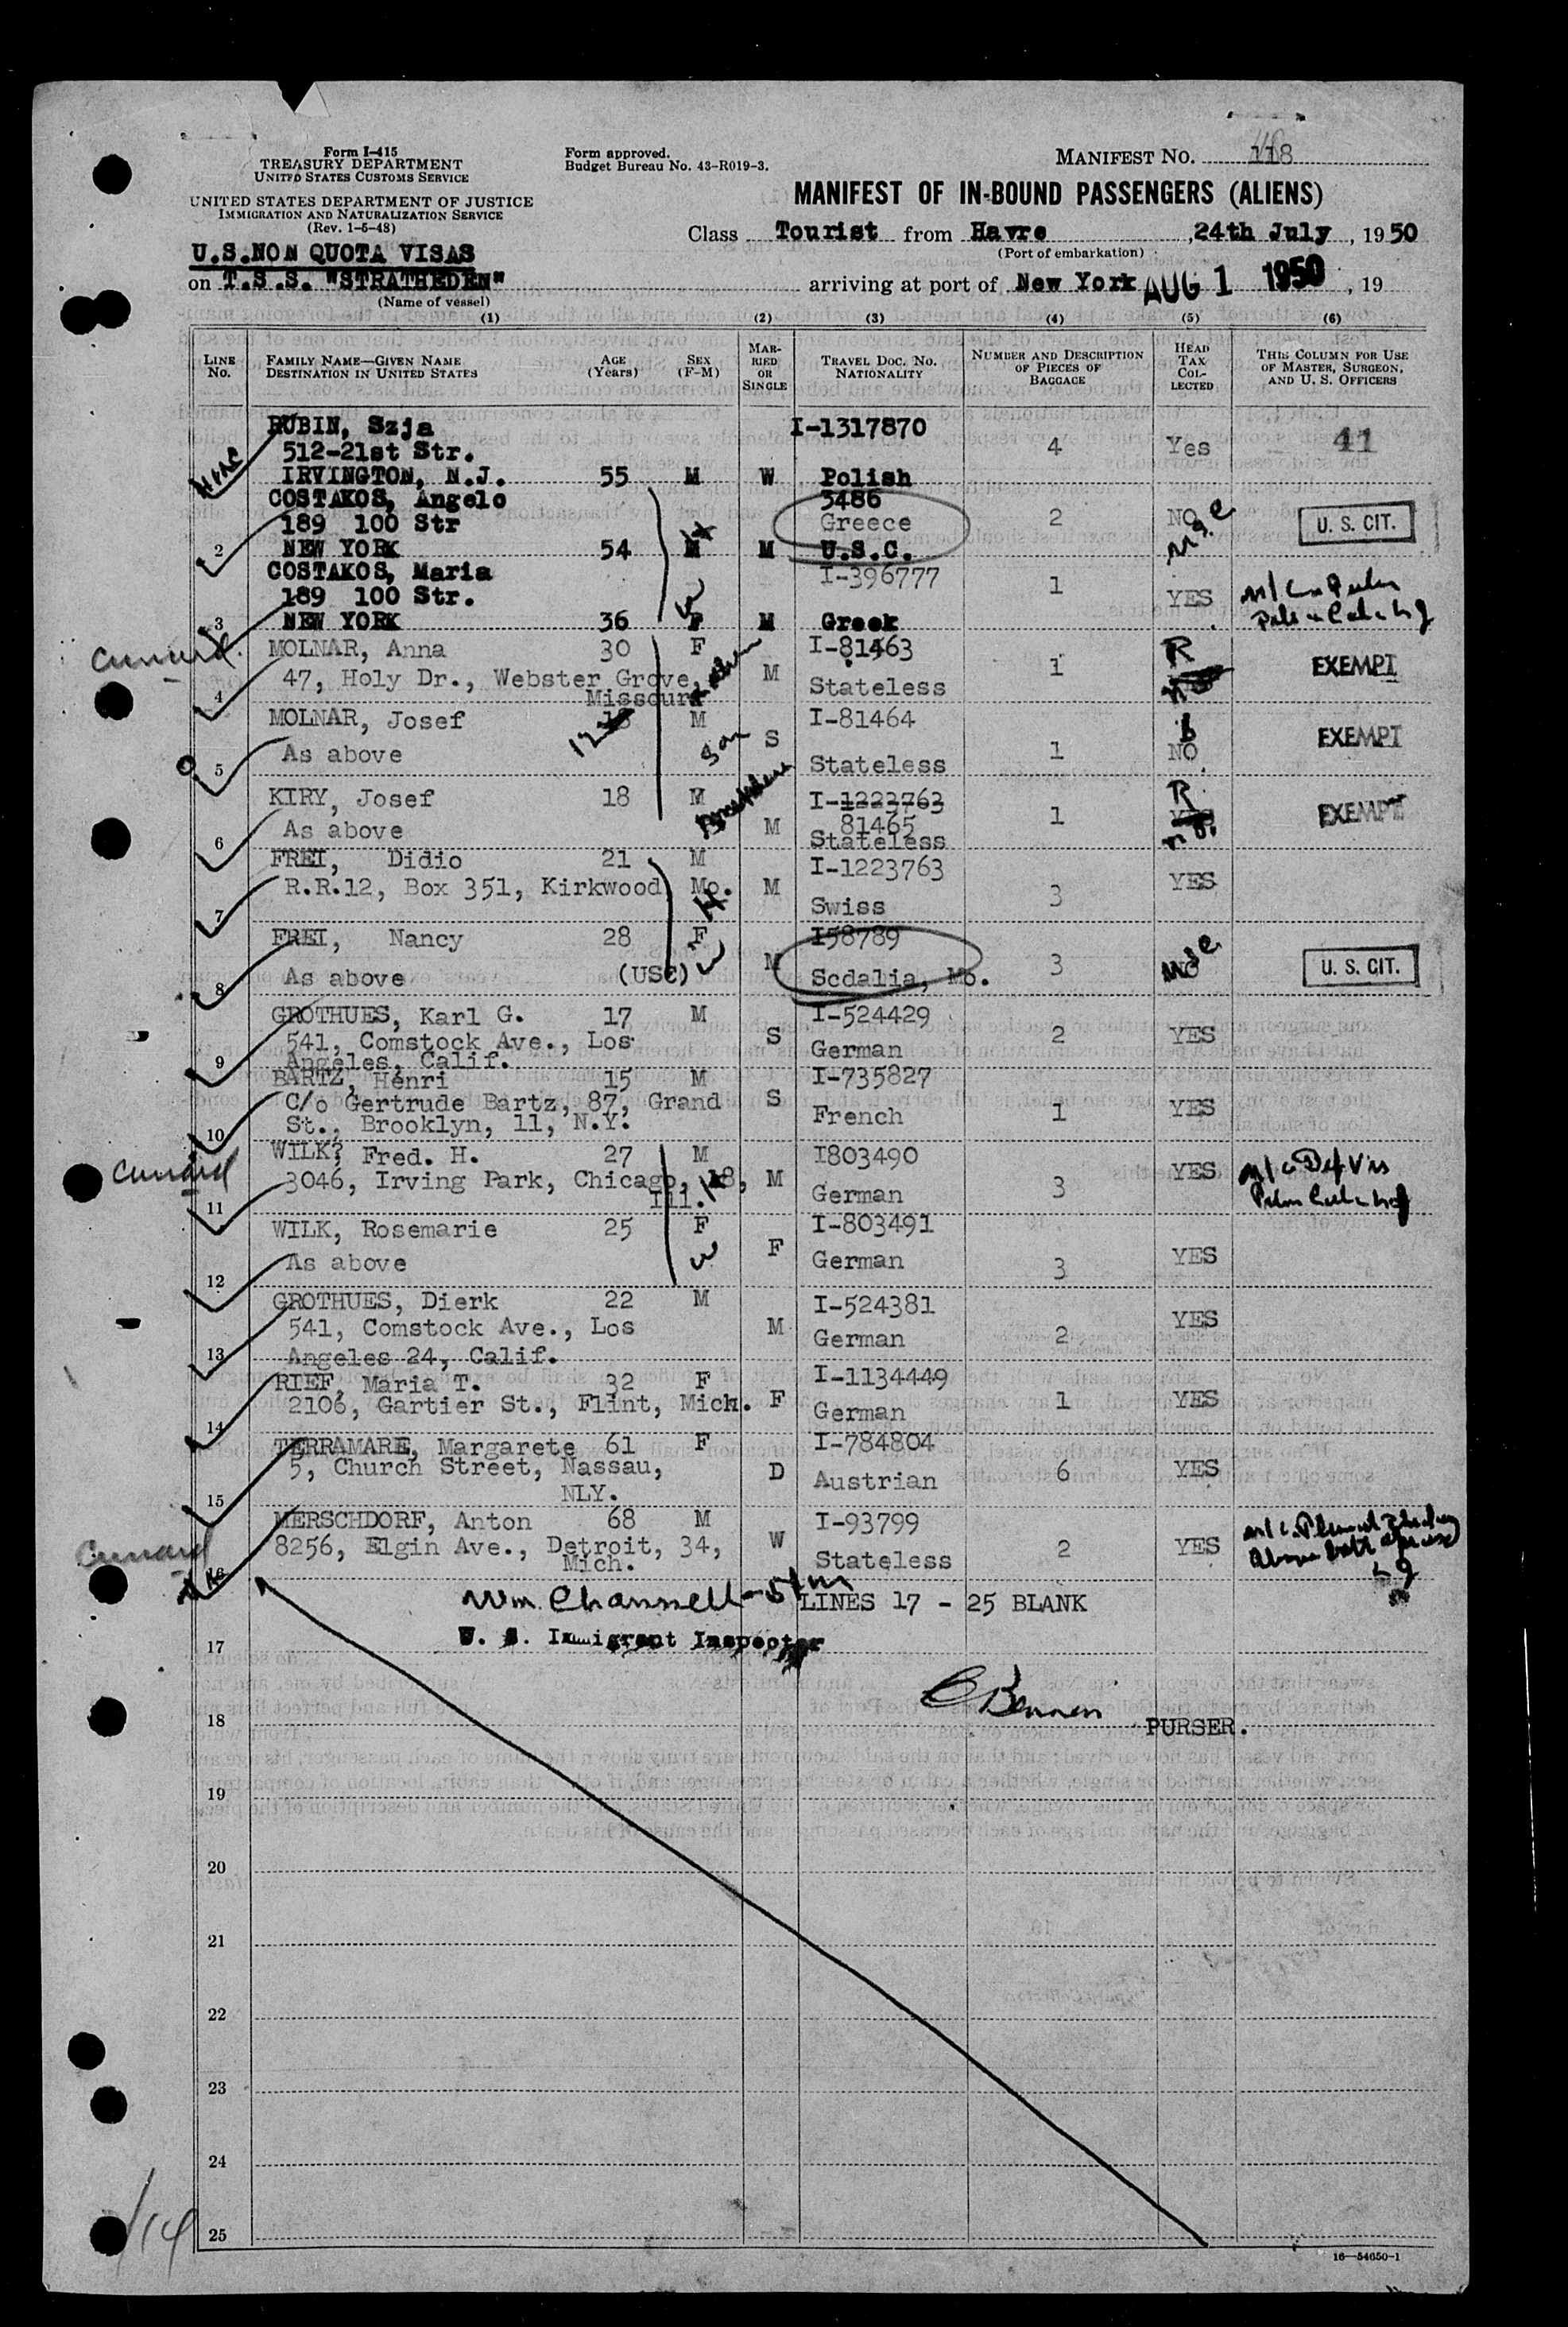 Form I-415
TREASURY DEPARTMENT
UNITED STATES CUSTOMS SERVICE
UNITED STATES DEPARTMENT OF JUSTICE
IMMIGRATION AND NATURALIZATION SERVICE
(Rev. 1-5-48)
Form approved.
Budget Bureau No. 43-R019-3.
MANIFEST NO. 118
MANIFEST OF IN-BOUND PASSENGERS (ALIENS)
Class Tourist from Havre, 24th July, 1950
(Port of embarkation)
U.S.NON QUOTA VISAS
on T.S.S. "STRATHEDEN" arriving at port of New York AUG 1 1950, 19
(Name of vessel)
(1) (2) (3) (4) (5) (6)
LINE No. FAMILY NAME—GIVEN NAME DESTINATION IN UNITED STATES AGE (Years) SEX (F-M) MARRIED OR SINGLE TRAVEL DOC. NO. NATIONALITY NUMBER AND DESCRIPTION OF PIECES OF BAGGAGE HEAD TAX COLLECTED THIS COLUMN FOR USE OF MASTER, SURGEON, AND U. S. OFFICERS
RUBIN, Szja I-1317870
512-21st Str. 4 Yes 41
IRVINGTON, N.J. 55 M W Polish
COSTAKOS, Angelo 3486
189 100 Str Greece 2 NO U. S. CIT.
2 NEW YORK 54 M M U.S.C.
COSTAKOS, Maria I-396777
189 100 Str. 1 YES
3 NEW YORK 36 F M Greek
Cunard
MOLNAR, Anna 30 F I-81463 R
47, Holy Dr., Webster Grove, M 1 EXEMPT
4 Missouri Stateless
MOLNAR, Josef 12 M son I-81464
As above S 1 NO EXEMPT
5 Stateless
KIRY, Josef 18 M I-1223763 R
As above M 81465 1 EXEMPT
6 Stateless
FREI, Didio 21 M I-1223763 YES
R.R.12, Box 351, Kirkwood Mo. M 3
7 H Swiss
FREI, Nancy 28 F I58789
As above (USC) W M Scdalia, Mo. 3 NO U. S. CIT.
8
GROTHUES, Karl G. 17 M I-524429
541, Comstock Ave., Los S 2 YES
9 Angeles, Calif. German
BARTZ, Henri 15 M I-735827
C/o Gertrude Bartz, 87, Grand S 1 YES
10 St., Brooklyn, 11, N.Y. French
Cunard
WILK? Fred. H. 27 M I803490 YES
3046, Irving Park, Chicago, 18, M 3
11 Ill. German
WILK, Rosemarie 25 F I-803491
As above W F German 3 YES
12
GROTHUES, Dierk 22 M I-524381 YES
541, Comstock Ave., Los M 2
13 Angeles 24, Calif. German
RIEF, Maria T. 32 F I-1134449
2106, Gartier St., Flint, Mich. F German 1 YES
14
TERRAMARE, Margarete 61 F I-784804
5, Church Street, Nassau, D Austrian 6 YES
15 NLY.
MERSCHDORF, Anton 68 M I-93799
8256, Elgin Ave., Detroit, 34, W 2 YES
16 Mich. Stateless
Cunard
Wm. Channell
LINES 17 - 25 BLANK
U. S. Immigrant Inspector
17
PURSER.
18
19
20
21
22
23
24
25
16—54650-1